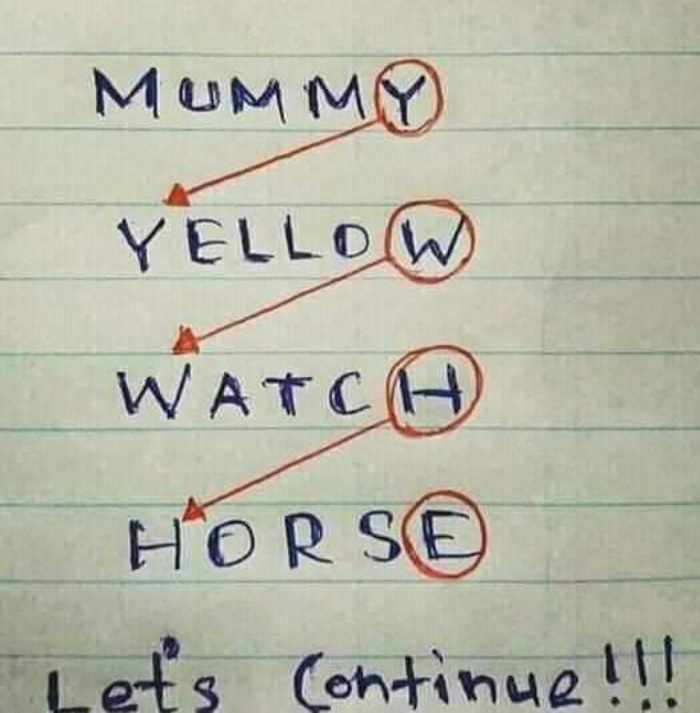 MUMMY
YELLOW
WATCH
HORSE
Let's Continue!!!